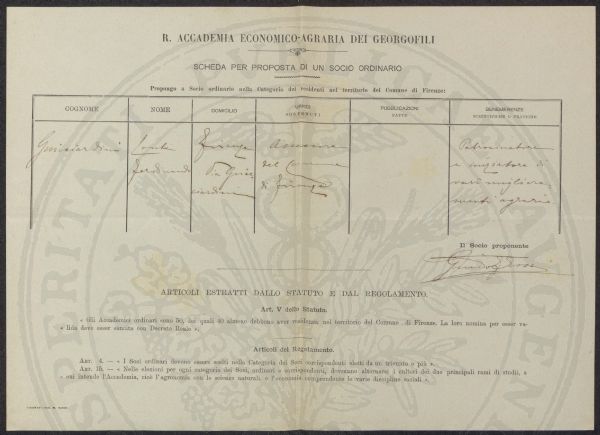 R. ACCADEMIA ECONOMICO-AGRARIA DEI GEORGOFILI
SCHEDA PER PROPOSTA DI UN SOCIO ORDINARIO
Propongo a Socio ordinario nella Categoria dei residenti nel territorio del Comune di Firenze:
COGNOME
NOME
DOMICILIO
UFFICI
SOSTENUTI
PUBBLICAZIONI
FATTE
BENEMERENZE
SCIENTIFICHE O PRATICHE
Guicciardini
Conte
Ferdinando
Firenze
Via Guic
ciardini
Assessore
del Comune
di Firenze
Patrocinatore
e iniziatore di
vari migliora
menti agrari
Il Socio proponente
ARTICOLI ESTRATTI DALLO STATUTO E DAL REGOLAMENTO.
Art. V dello Statuto.
« Gli Accademici ordinari sono 50, dei quali 40 almeno debbono aver residenza nel territorio del Comune di Firenze. La loro nomina per esser va-
« lida deve esser sancita con Decreto Reale ».
Articoli del Regolamento.
ART. 4. — « I Soci ordinari devono essere scelti nella Categoria dei Soci corrispondenti eletti da un triennio o più ».
ART. 15. — « Nelle elezioni per ogni categoria dei Soci, ordinari o corrispondenti, dovranno alternarsi i cultori dei due principali rami di studii, a
« cui intende l'Accademia, cioè l'agronomia con le scienze naturali e l'economia comprendente le varie discipline sociali ».